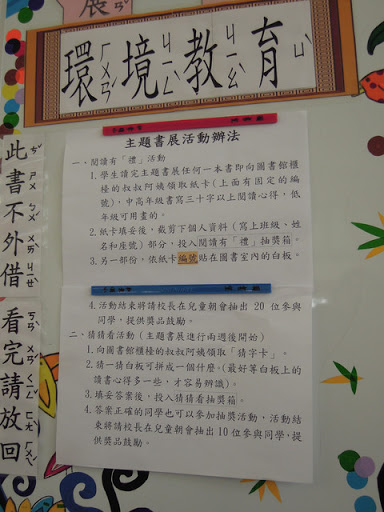 展
環境教育
ㄏㄨㄢˊ ㄐㄧㄥˋ ㄐㄧㄠˋ ㄩˋ
此書不外借
看完請放回
主題書展活動辦法
一、閱讀有「禮」活動
1.學生讀完主題書展任何一本書即向圖書館櫃
檯的叔叔阿姨領取紙卡(上面有固定的編
號),中高年級書寫三十字以上閱讀心得,低
年級可用畫的。
2.紙卡填妥後,裁剪下個人資料(寫上班級、姓
名和座號)部分,投入閱讀有「禮」抽獎箱。
3.另一部份,依紙卡編號貼在圖書室內的白板。
4.活動結束將請校長在兒童朝會抽出 20 位參與
同學,提供獎品鼓勵。
二、猜猜看活動(主題書展進行兩週後開始)
1.向圖書館櫃檯的叔叔阿姨領取「猜字卡」。
2.猜一猜白板可拼成一個什麼。(最好等白板上的
讀書心得多一些,才容易辨識)。
3.填妥答案後,投入猜猜看抽獎箱。
4.答案正確的同學也可以參加抽獎活動,活動結
束將請校長在兒童朝會抽出10位參與同學,提
供獎品鼓勵。